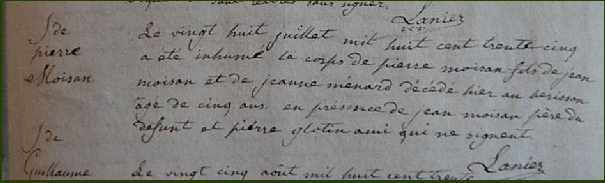 signer.
Lanier
S. de
pierre
Moisan
Le vingt huit juillet mil huit cent trente cinq
a été inhumé le corps de pierre moisan fils de jean
moisan et de jeanne ménard décédé hier au
âge de cinq ans en présence de jean moisan père du
defunt et pierre glotin ami qui ne signent
Lanier
S. de
Guillaume
Le vingt cinq août mil huit cent trente